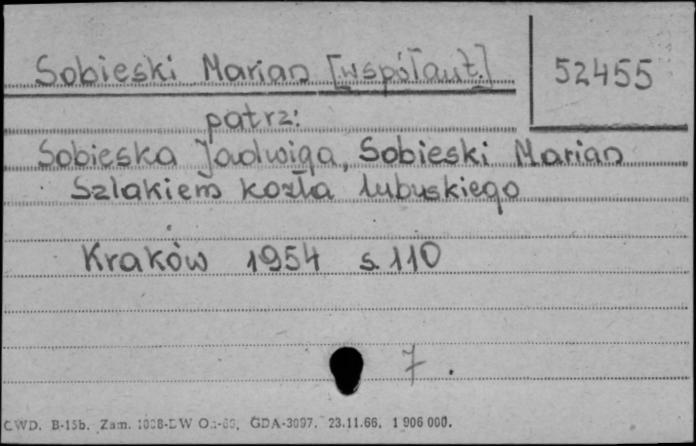 Sobieski Marian [współaut.] 52455
patrz:
Sobieska Jadwiga, Sobieski Marian
Szlakiem kozła lubuskiego
Kraków 1954 s. 110
7.
CWD. B-15b. Zam. GDA-3097. 23.11.66. 1 906 000.